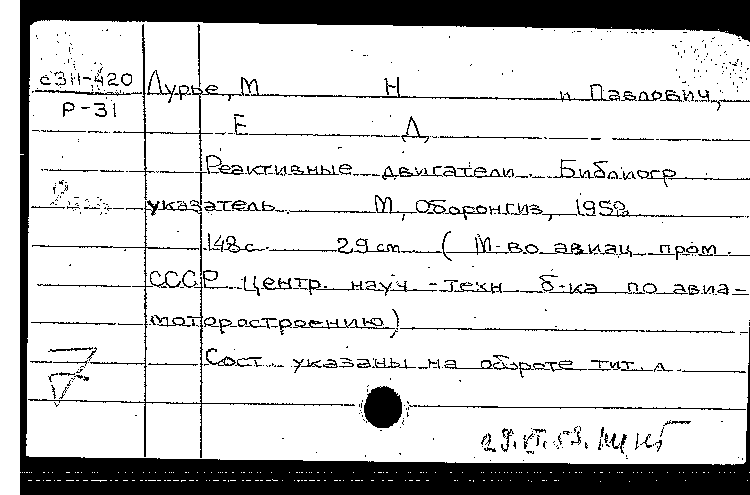 с311-420
Р-31
Лурье, М Н и Павлович,
Е Д
Реактивные двигатели. Библиогр
указатель. М, Оборонгиз, 1958
148с 29см (М-во авиац пром.
СССР Центр. науч-техн б-ка по авиа-
моторостроению)
Сост указаны на обороте тит. л